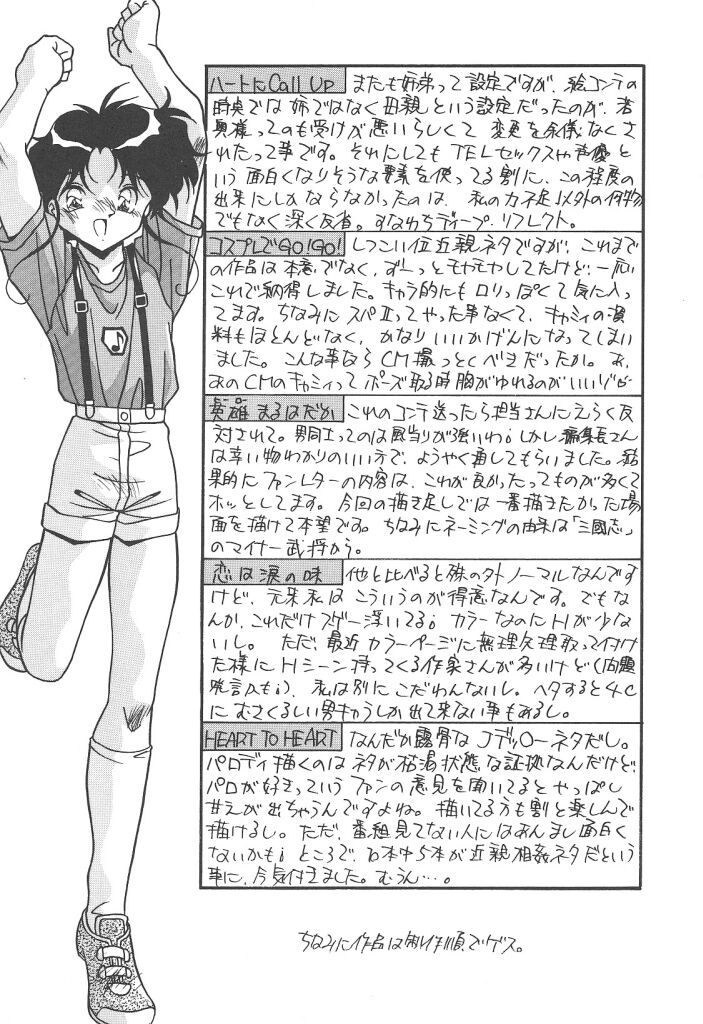 ハートにCall Up またも姉弟って設定ですが、絵コンテの
時点では姉ではなく母親という設定だったのが、若
奥様ってのも受けが悪いらしくて 変更を余儀なくさ
れたって事です。それにしてもTELセックスや声優と
いう面白くなりそうな要素を使ってる割に、この程度の
出来にしかならなかったのは、私の力不足以外の何物
でもなく深く反省。すなわちディープ リフレクト。
コスプレでGO!GO! しつこい位近親ネタですが、これまで
の作品は本意でなく、ずーっとモヤモヤしてたけど、一応
これで納得しました。キャラ的にもロリっぽくて気に入っ
てます。ちなみにスパⅡってやった事なくて、キャミィの資
料もほとんどなく、かなりいいかげんになってしまい
ました。こんな事ならCM撮っとくべきだったか。あ、
あのCMのキャミィってポーズ取る時胸がゆれるのがいいゾ
英雄まるはだか これのコンテ送ったら担当さんにえらく反
対されて。男同士ってのは風当りが強いわ¡しかし編集長さん
は幸い物わかりのいい方で、ようやく通してもらいました。結
果的にファンレターの内容は、これが良かったってものが多くて
ホッとしてます。今回の描き足しでは一番描きたかった場
面を描けて本望です。ちなみにネーミングの由来は「三國志」
のマイナー武将から。
恋は涙の味 他と比べると殊の外ノーマルなんです
けど、元来私はこういうのが得意なんです。でもな
んか、これだけスゲー浮いてる¡カラーなのにHが少な
いし。ただ、最近カラーページに無理矢理取って付け
た様にHシーン持ってくる作家さんが多いけど(問題
発言かも¡)、私は別にこだわんないし。ヘタすると4C
にむさくるしい男キャラしか出て来ない事もあるし。
HEART TO HEART なんだか露骨なJデッローネタだし。
パロディ描くのはネタが枯渇状態な証拠なんだけど、
パロが好きっていうファンの意見を聞いてるとやっぱし
甘えが出ちゃうんですよね。描いてる方も割と楽しんで
描けるし。ただ、番組見てない人にはあんまし面白く
ないかも¡ところで、10本中5本が近親相姦ネタだという
事に、今気付きました。むうん…。
ちなみに作品は制作順でゲス。